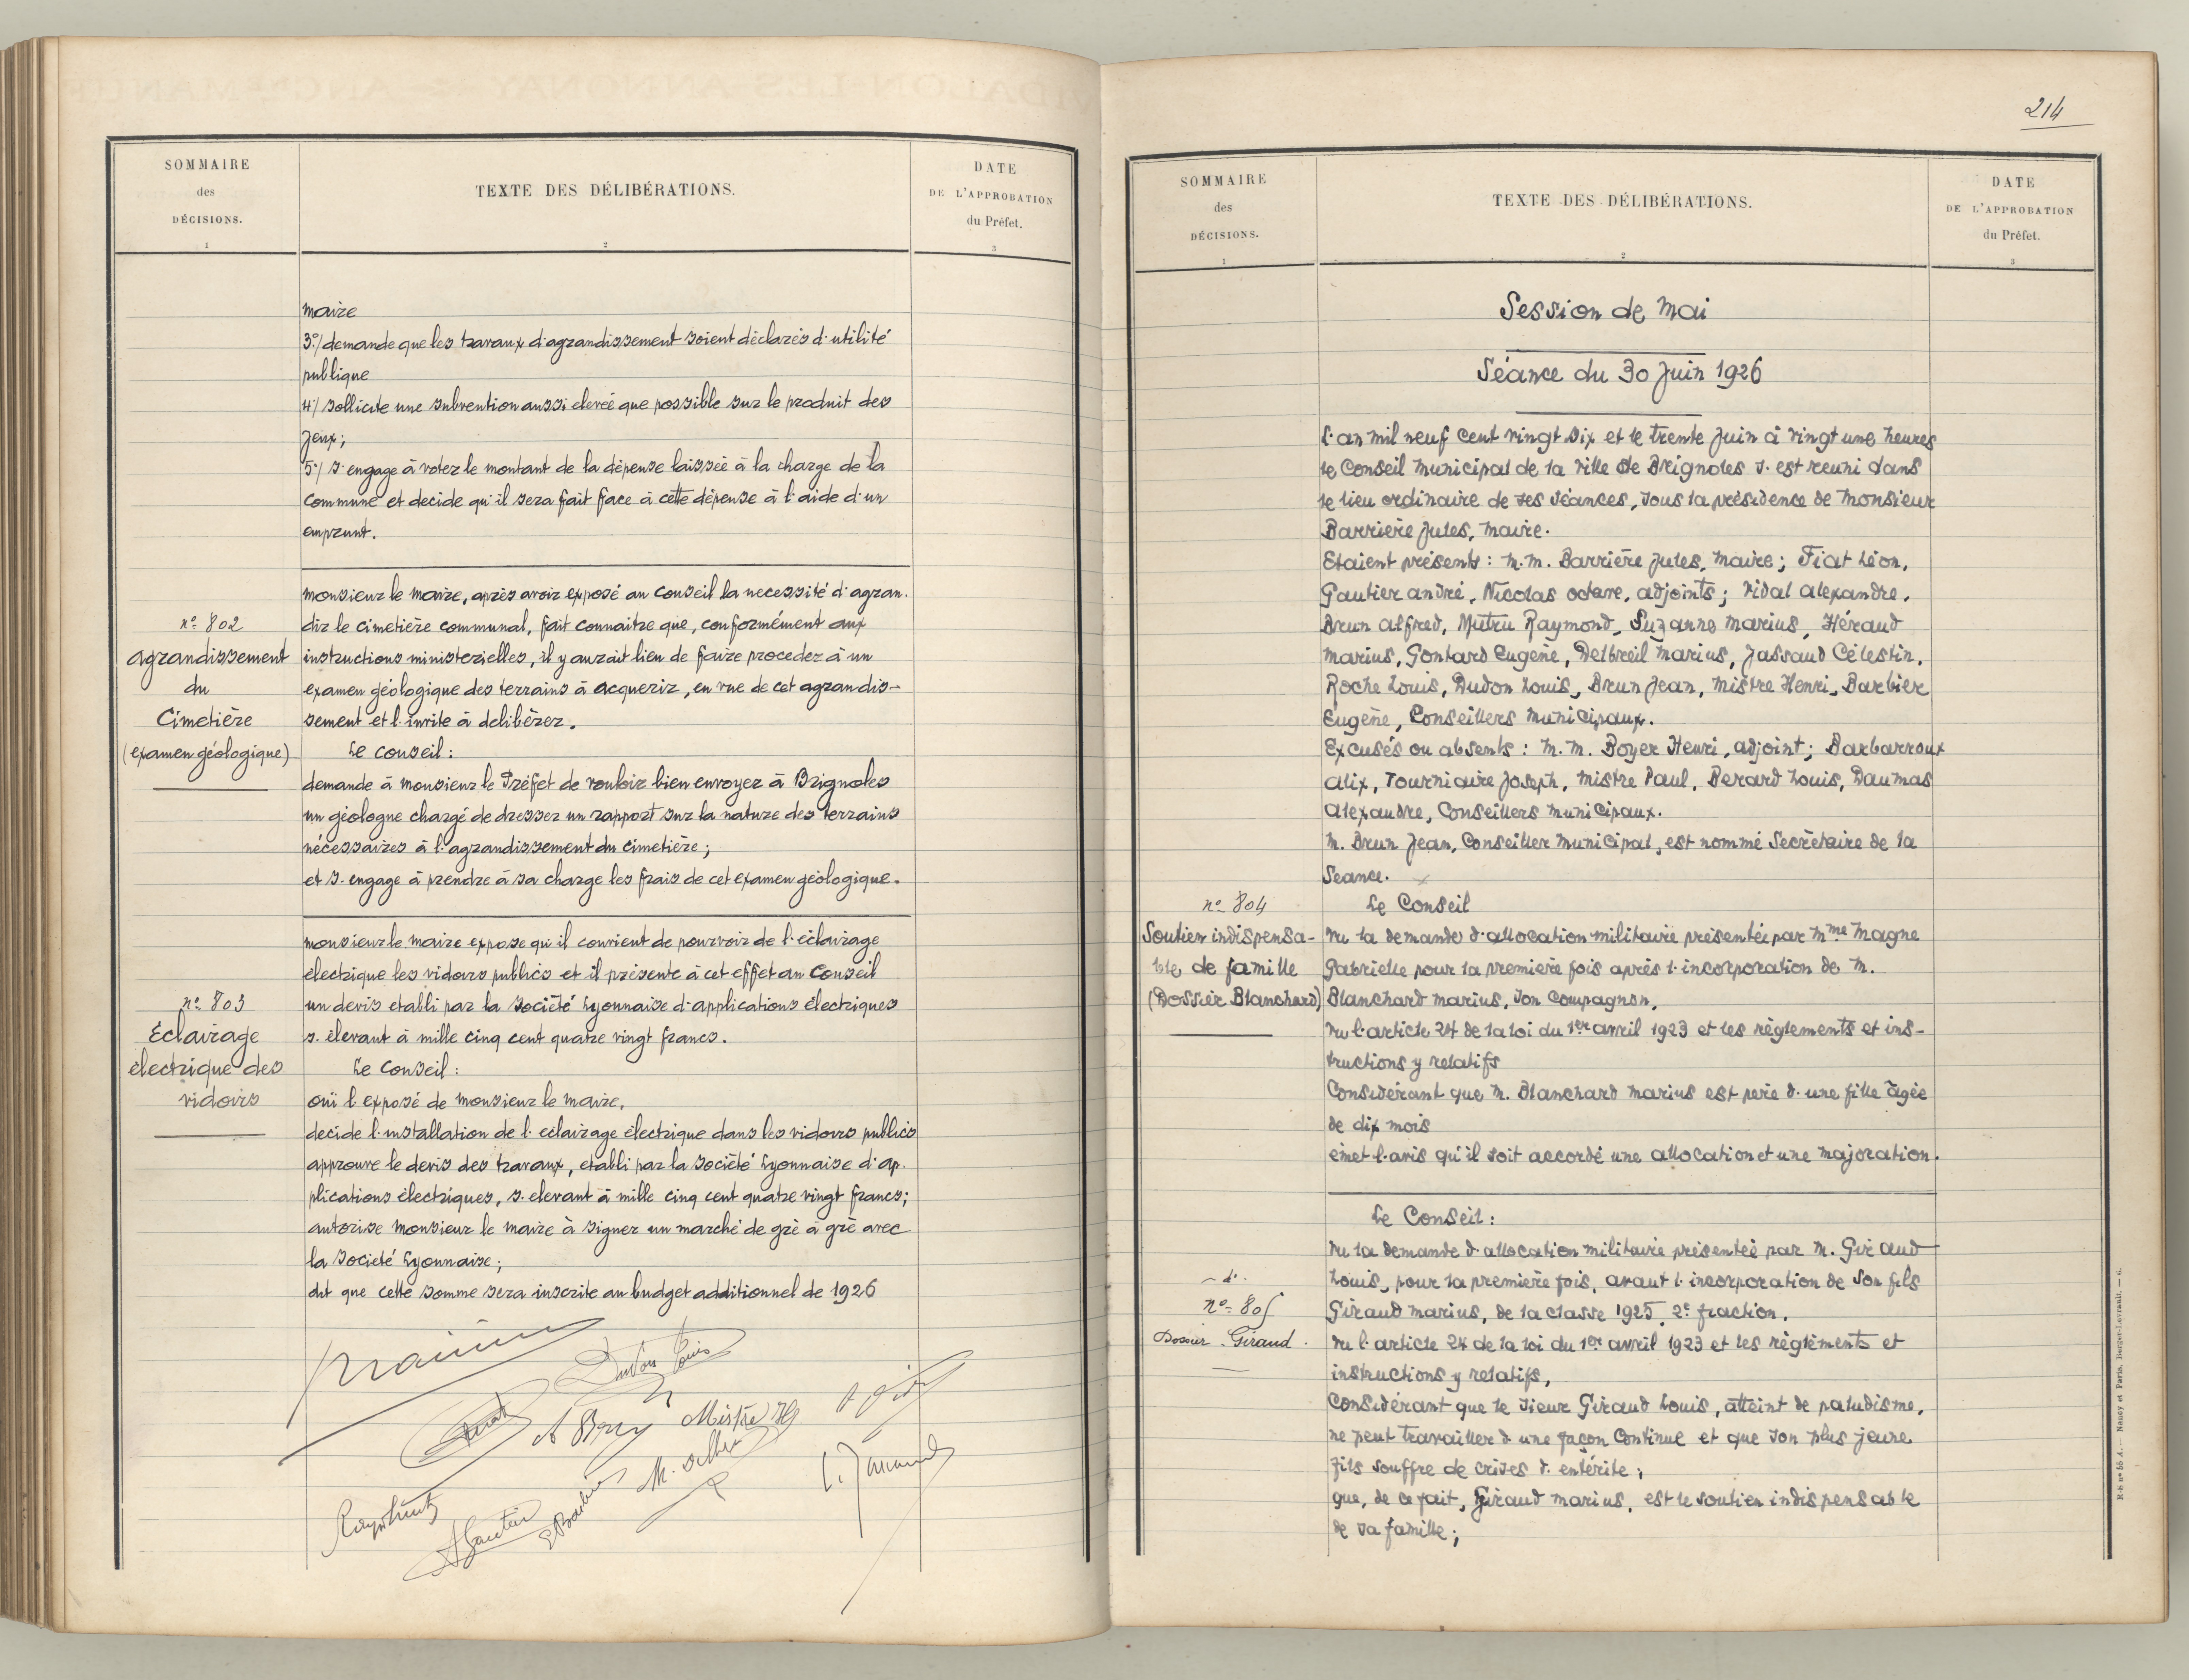 SOMMAIRE
des
DÉCISIONS.
1
TEXTE DES DÉLIBÉRATIONS.
2
DATE
DE L'APPROBATION
du Préfet.
3
maire
3º/ demande que les travaux d'agrandissement soient déclarés d'utilité
publique
4º/ sollicite une subvention aussi elevée que possible sur le produit des
Jeux;
5º/ s'engage à voter le montant de la dépense laissée à la charge de la
commune et decide qu'il sera fait face à cette dépense à l'aide d'un
emprunt.
nº 802
agrandissement
du
Cimetière
(examen géologique)
monsieur le maire, après avoir exposé au Conseil la necessité d'agran.
dir le cimetière communal, fait connaitre que, conformément aux
instructions ministerielles, il y aurait lieu de faire proceder à un
examen géologique des terrains à acquerir, en vue de cet agrandis-
sement et l'invite à delibérer.
Le conseil:
demande à monsieur le Préfet de vouloir bien envoyer à Brignoles
un géologue chargé de dresser un rapport sur la nature des terrains
nécessaires à l'agrandissement du cimetière;
et s'engage à prendre à sa charge les frais de cet examen géologique.
nº 803
Éclairage
électrique des
vidoirs
monsieur le maire expose qu'il convient de pourvoir de l'éclairage
électrique les vidoirs publics et il présente à cet effet au Conseil
un devis etabli par la Société Lyonnaise d'applications électriques
s'élevant à mille cinq cent quatre vingt francs.
Le Conseil:
ouï l'exposé de monsieur le maire,
decide l'installation de l'eclairage électrique dans les vidoirs publics
approuve le devis des travaux, etabli par la société Lyonnaise d'ap.
plications électriques, s'elevant à mille cinq cent quatre vingt francs;
autorise monsieur le maire à signer un marché de gré à gré avec
la société Lyonnaise;
dit que cette somme sera inscrite au budget additionnel de 1926
Dudon Louis
Mistre H
Gautier
E Barbier
214
SOMMAIRE
des
DÉCISIONS.
1
TEXTE DES DÉLIBÉRATIONS.
2
DATE
DE L'APPROBATION
du Préfet.
3
Session de mai
Séance du 30 Juin 1926
L'an mil neuf cent vingt six et le trente juin à vingt une heures
le Conseil municipal de la ville de Brignoles s'est reuni dans
le lieu ordinaire de ses séances, sous la présidence de monsieur
Barrière Jules, maire.
Etaient présents: M.M. Barrière Jules, maire; Fiat Léon,
Gautier andré, Nicolas octave, adjoints; vidal alexandre,
Brun alfred, Mutru Raymond, Suzanne marius, Héraud
marius, Gontard Eugène, Delbreil marius, Jassaud Célestin,
Roche Louis, Dudon Louis, Brun Jean, mistre Henri, Barbier
Eugène, Conseillers municipaux.
Excusés ou absents: M.M. Boyer Henri, adjoint; Barbarroux
alix, Tourniaire Joseph, mistre Paul, Berard Louis, Daumas
alexandre, Conseillers municipaux.
M. Brun Jean, Conseiller municipal, est nommé Secrétaire de la
Seance.
nº 804
Soutien indispensa-
ble de famille
(Dossier Blanchard)
Le Conseil
vu la demande d'allocation militaire présentée par Mme magne
Gabrielle pour la première fois après l'incorporation de M.
Blanchard marius, son compagnon,
vu l'article 24 de la loi du 1er avril 1923 et les règlements et ins-
tructions y relatifs
Considérant que M. Blanchard marius est père d'une fille âgée
de dix mois
émet l'avis qu'il soit accordé une allocation et une majoration.
- dº -
nº 805
Dossier Giraud.
Le Conseil:
vu la demande d'allocation militaire présentée par M. Giraud
Louis, pour la première fois, avant l'incorporation de son fils
Giraud marius, de la classe 1925, 2e fraction,
vu l'article 24 de la loi du 1er avril 1923 et les règlements et
instructions y relatifs,
Considérant que le sieur Giraud Louis, atteint de paludisme,
ne peut travailler d'une façon continue et que son plus jeune
fils souffre de crises d'entérite;
que, de ce fait, Giraud marius, est le soutien indispensable
de sa famille;